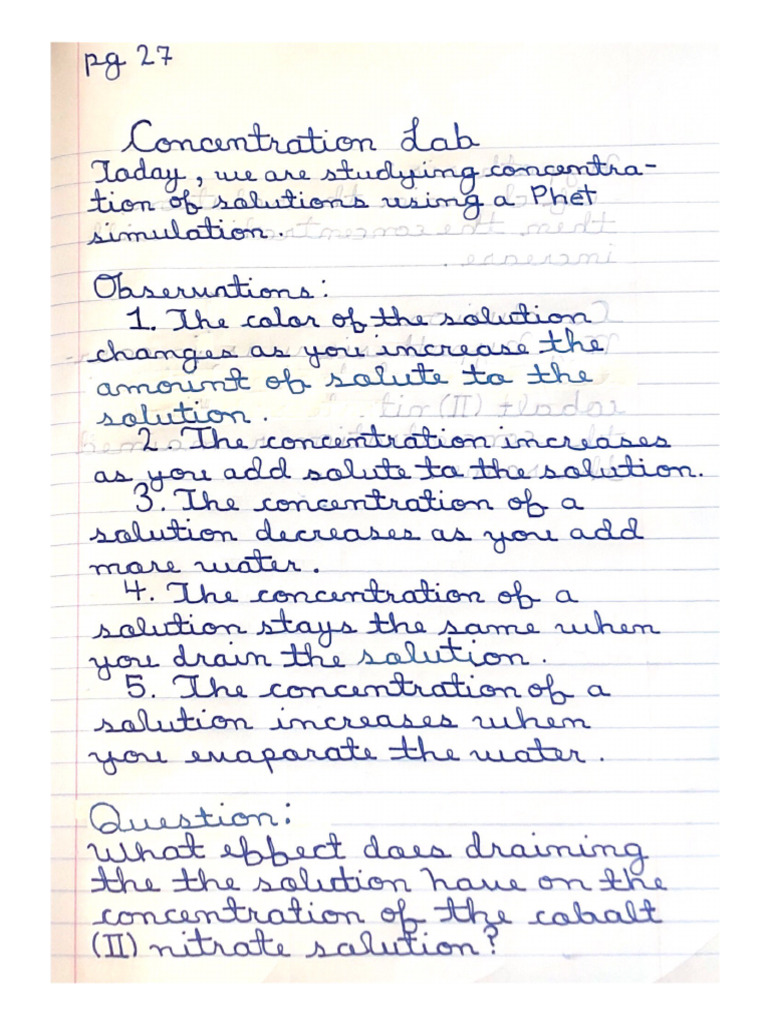 pg 27
Concentration Lab
Today, we are studying concentra-
tion of solutions using a Phet
simulation.
Observations:
1. The color of the solution
changes as you increase the
amount of solute to the
solution.
2 The concentration increases
as you add solute to the solution.
3. The concentration of a
solution decreases as you add
more water.
4. The concentration of a
solution stays the same when
you drain the solution.
5. The concentration of a
solution increases when
you evaporate the water.
Question:
What effect does draining
the the solution have on the
concentration of the cobalt
(II) nitrate solution?